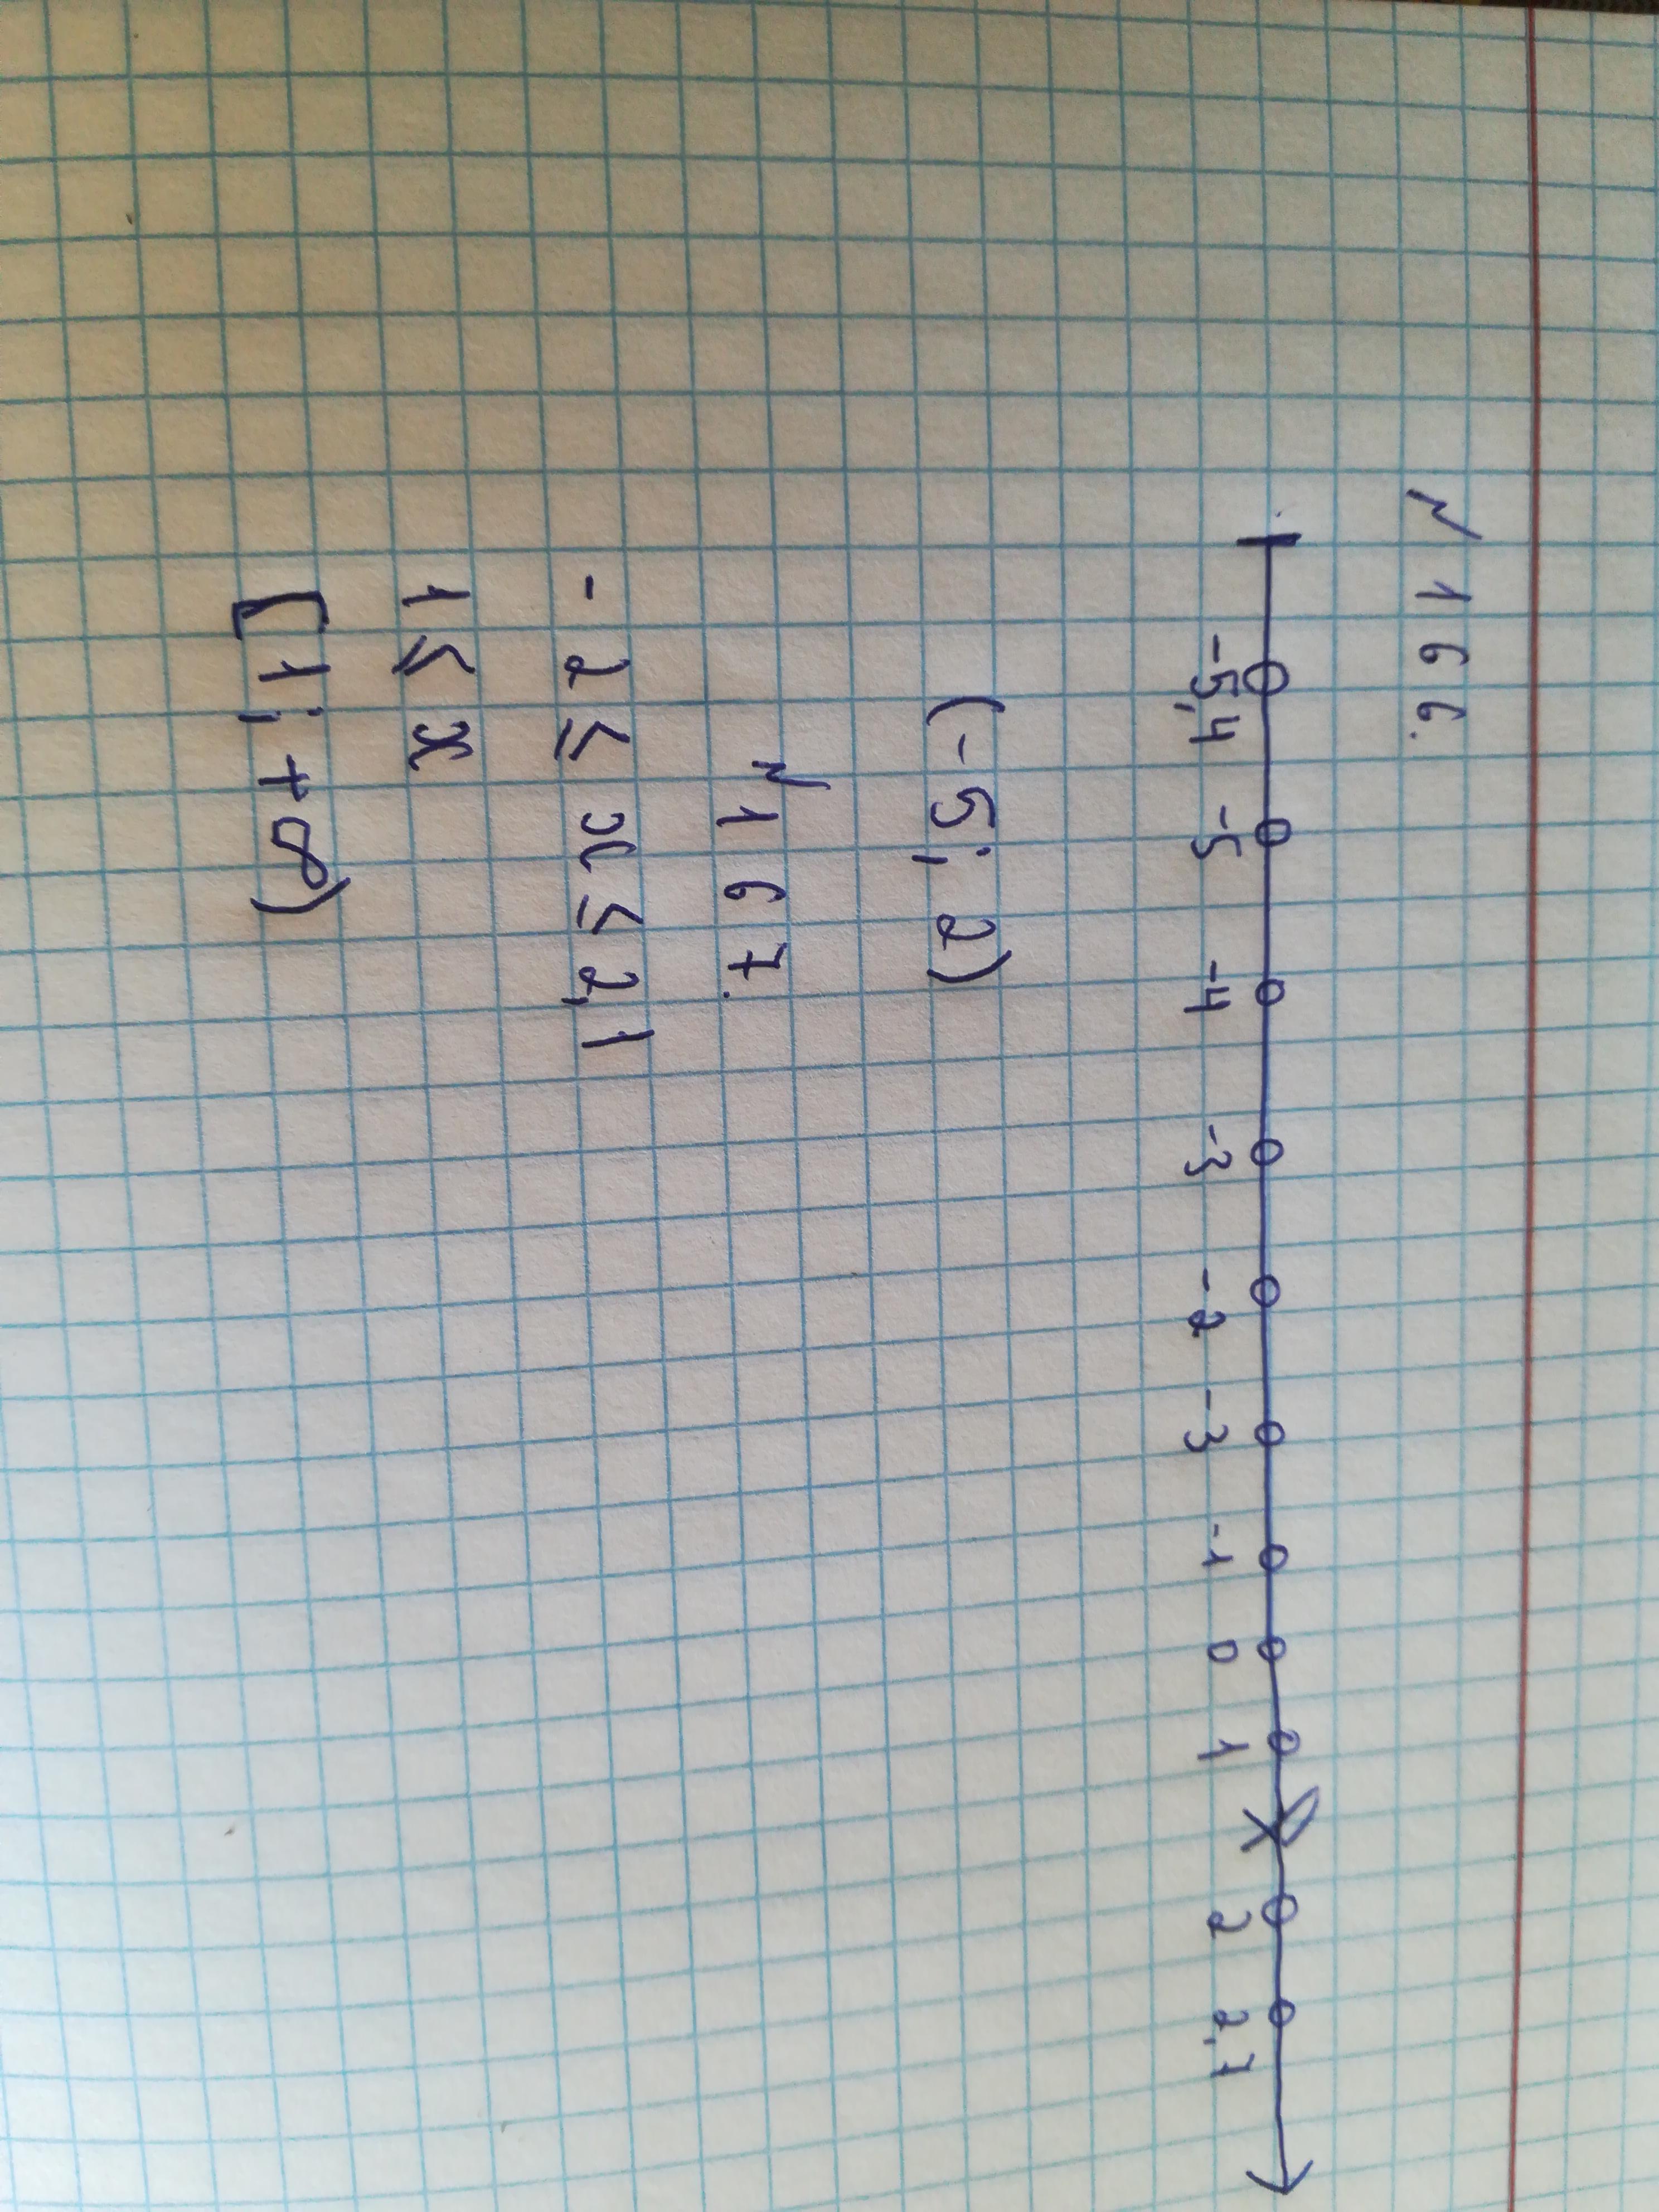 № 166.
-5,4 -5 -4 -3 -2 -3 -1 0 1 2 2,7
(-5; 2)
№ 167.
-2 ≤ x ≤ 2,1
1 ≤ x
[1; +∞)